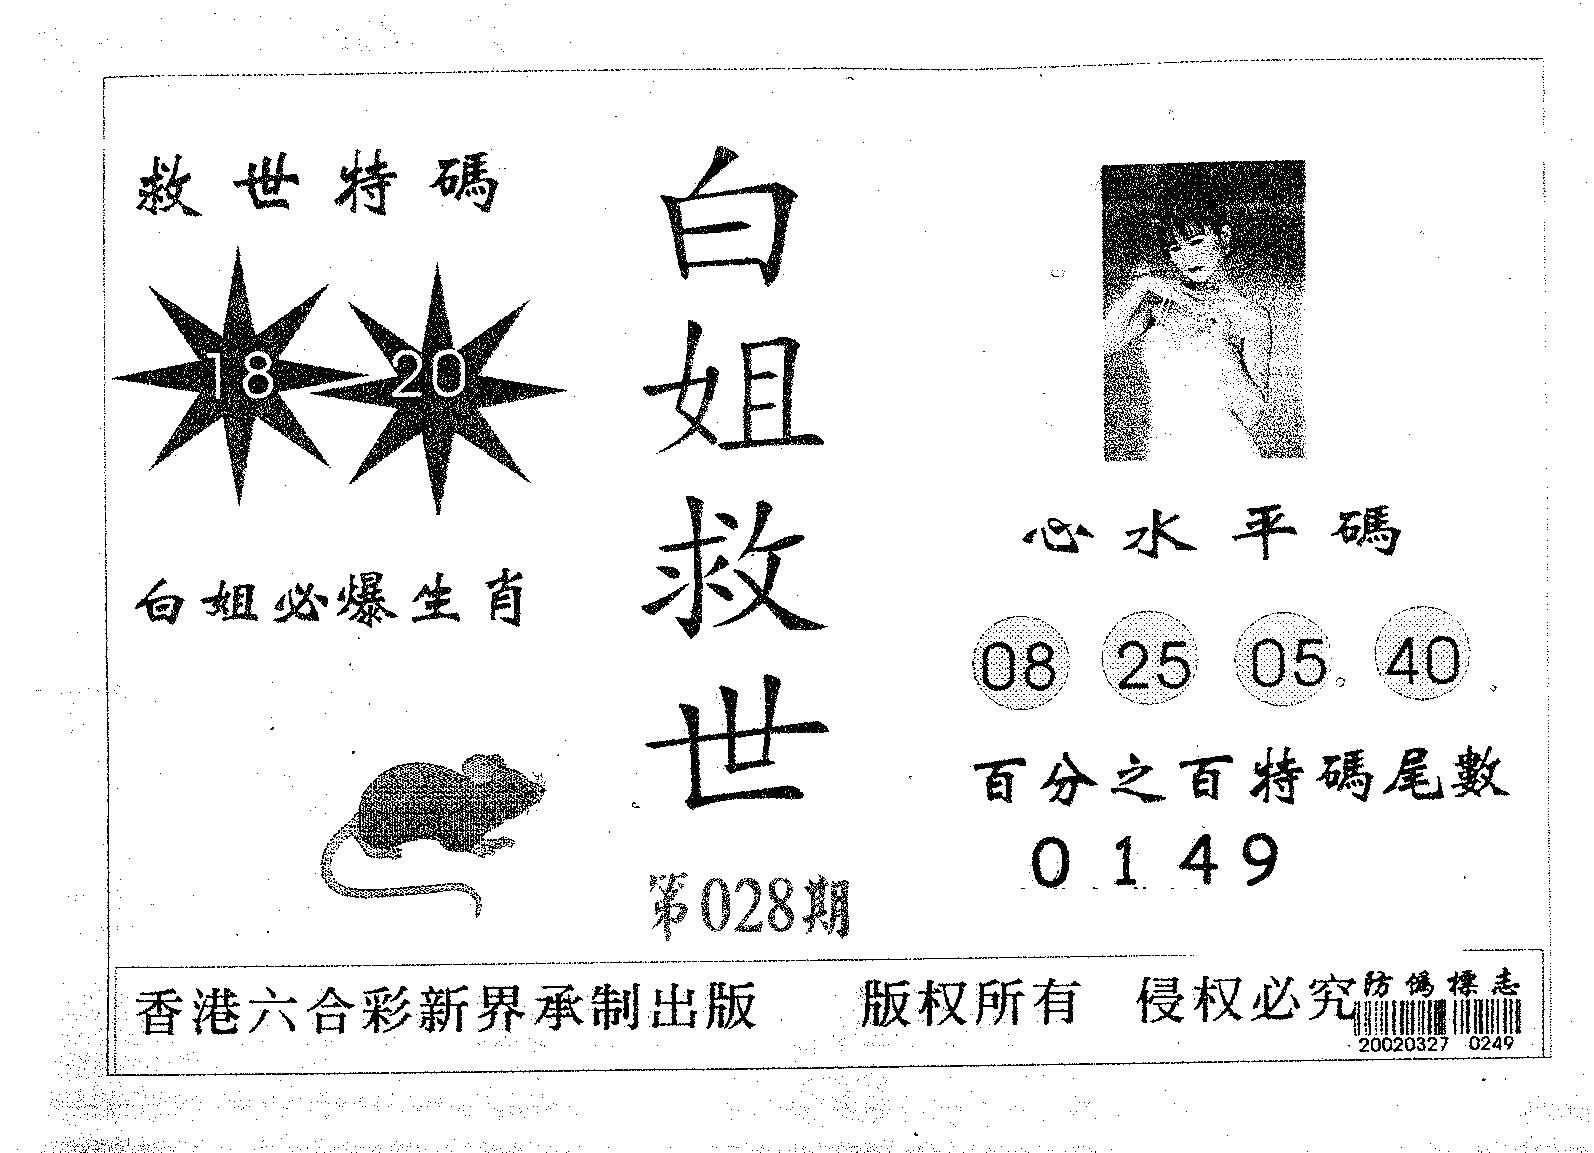 救世特碼
18 20
白姐必爆生肖
白姐救世
第028期
心水平碼
08 25 05 40
百分之百特碼尾數
0 1 4 9
香港六合彩新界承制出版 版权所有 侵权必究
防偽標志
20020327 0249